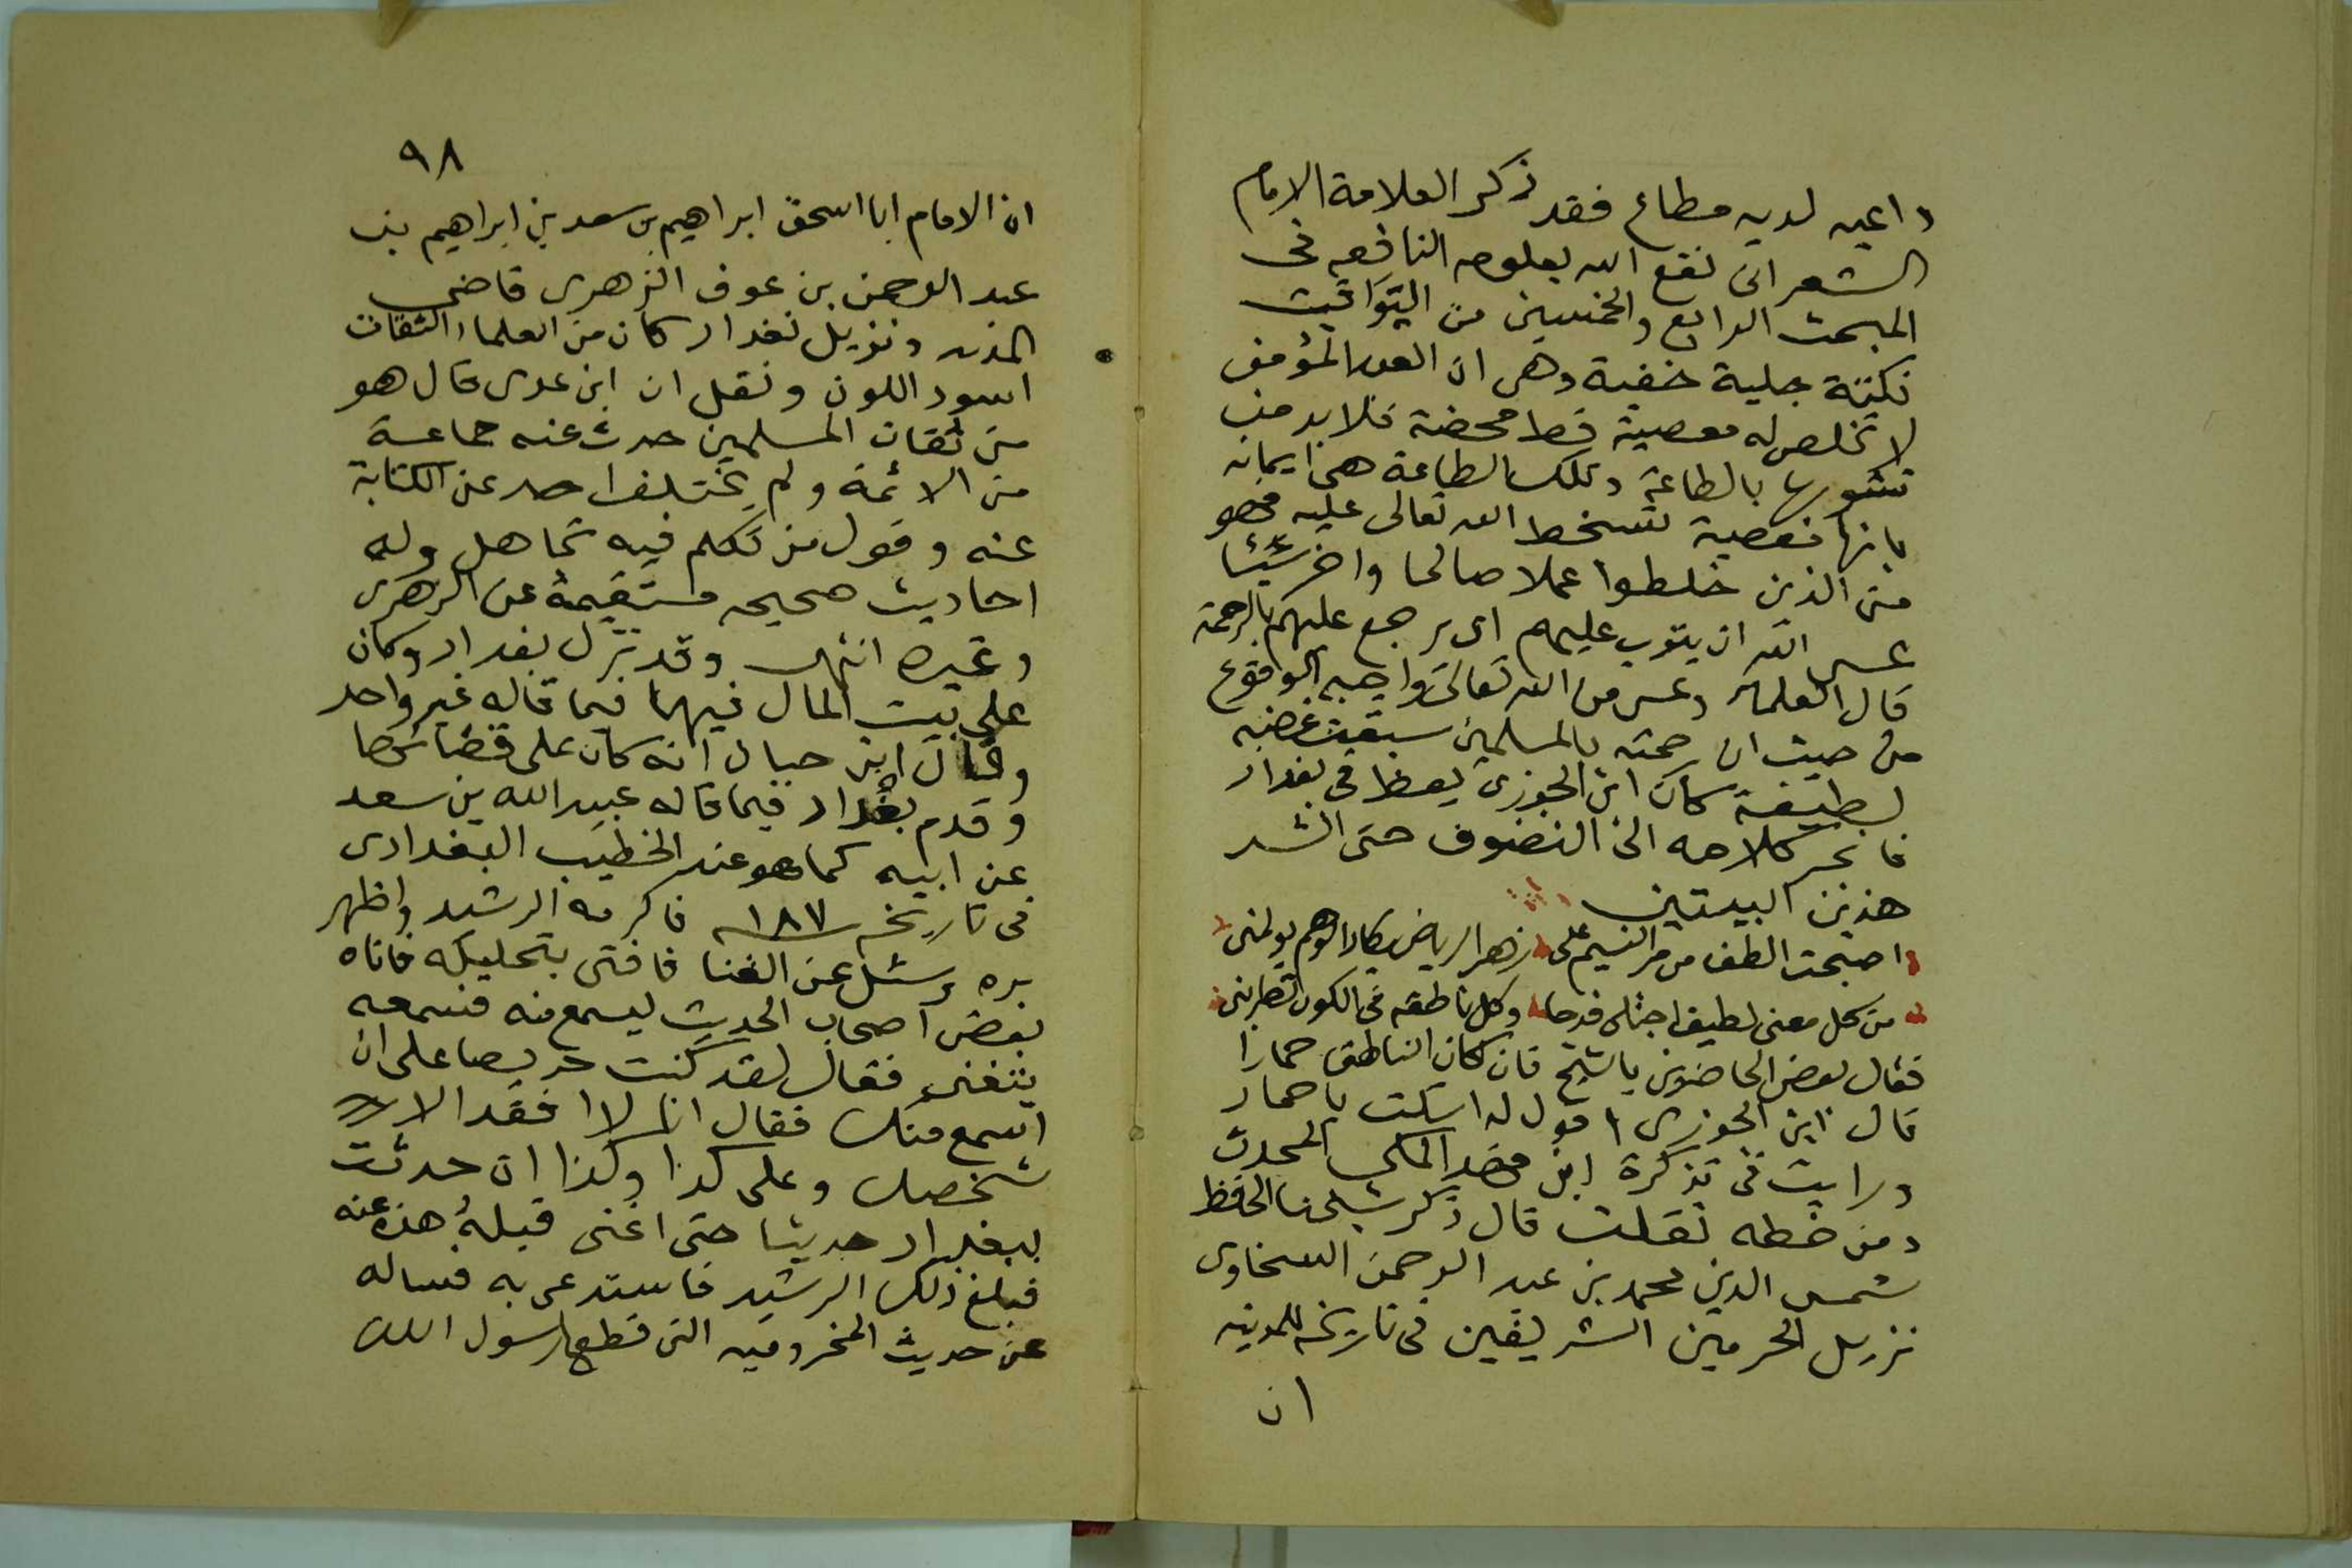 داعيه لديه مطاع فقد ذكر العلامة الامام
الشعرانى نفع الله بعلومه النافعه فى
المبحث الرابع والخمسين من اليواقيت
نكتة جلية خفية وهى ان العبد المؤمن
لا تخلص له معصية قط محضة فلا بد من
تشوبها بالطاعة وتلك الطاعة هى ايمانه
بانها معصية تسخط الله تعالى عليه فهو
من الذين خلطوا عملا صالحا واخر سيئا
عسى الله ان يتوب عليهم اى يرجع عليهم بالرحمة
قال العلماء وعسى من الله تعالى واجبه الوقوع
من حيث ان رحمته بالمسلمين سبقت غضبه
لطيفة كان ابن الجوزى يعظ فى بغداد
فانجر كلامه الى التصوف حتى انشد
هذين البيتين
اصبحت الطف من مر النسيم على زهر الرياض يكاد الوهم يولمنى
من كل معنى لطيف اجتلى قدحا وكل ناطقه فى الكون تطربنى
فقال بعض الحاضرين يا شيخ فان كان الناطق حمارا
قال ابن الجوزى اقول له اسكت يا حمار
ورايت فى تذكرة ابن فهد المكى المحدث
ومن خطه نقلت قال ذكر شيخنا الحافظ
شمس الدين محمد بن عبد الرحمن السخاوى
نزيل الحرمين الشريفين فى تاريخه للمدينه
ان
٩٨
ان الامام ابا اسحق ابراهيم بن سعد بن ابراهيم بن
عبد الرحمن بن عوف الزهرى قاضى
المدينه ونزيل بغداد كان من العلماء الثقات
اسود اللون ونقل ان ابن عدى قال هو
من ثقات المسلمين حدث عنه جماعة
من الائمة ولم يختلف احد عن الكتابة
عنه وقول من تكلم فيه تحاهل وله
احاديث صحيحه مستقيمة عن الزهرى
وغيره انتهى وقد نزل بغداد وكان
على بيت المال فيها فيما قاله غير واحد
وقال ابن حبان انه كان على قضائها
وقدم بغداد فيما قاله عبيد الله بن سعد
عن ابيه كما هو عند الخطيب البغدادى
فى تاريخه ١٨٧ فاكرمه الرشيد واظهر
بره وسئل عن الغنا فافتى بتحليله فاتاه
بعض اصحاب الحديث ليسمع منه فسمعه
يتغنى فقال لقد كنت حريصا على ان
اسمع منك فقال انا لا افقد الا
شخصك وعلى كذا وكذا ان حدثت
ببغداد حديثا حتى اغنى قبله هذه عنه
فبلغ ذلك الرشيد فاستدعى به فساله
عن حديث المخزوميه التى قطع رسول الله